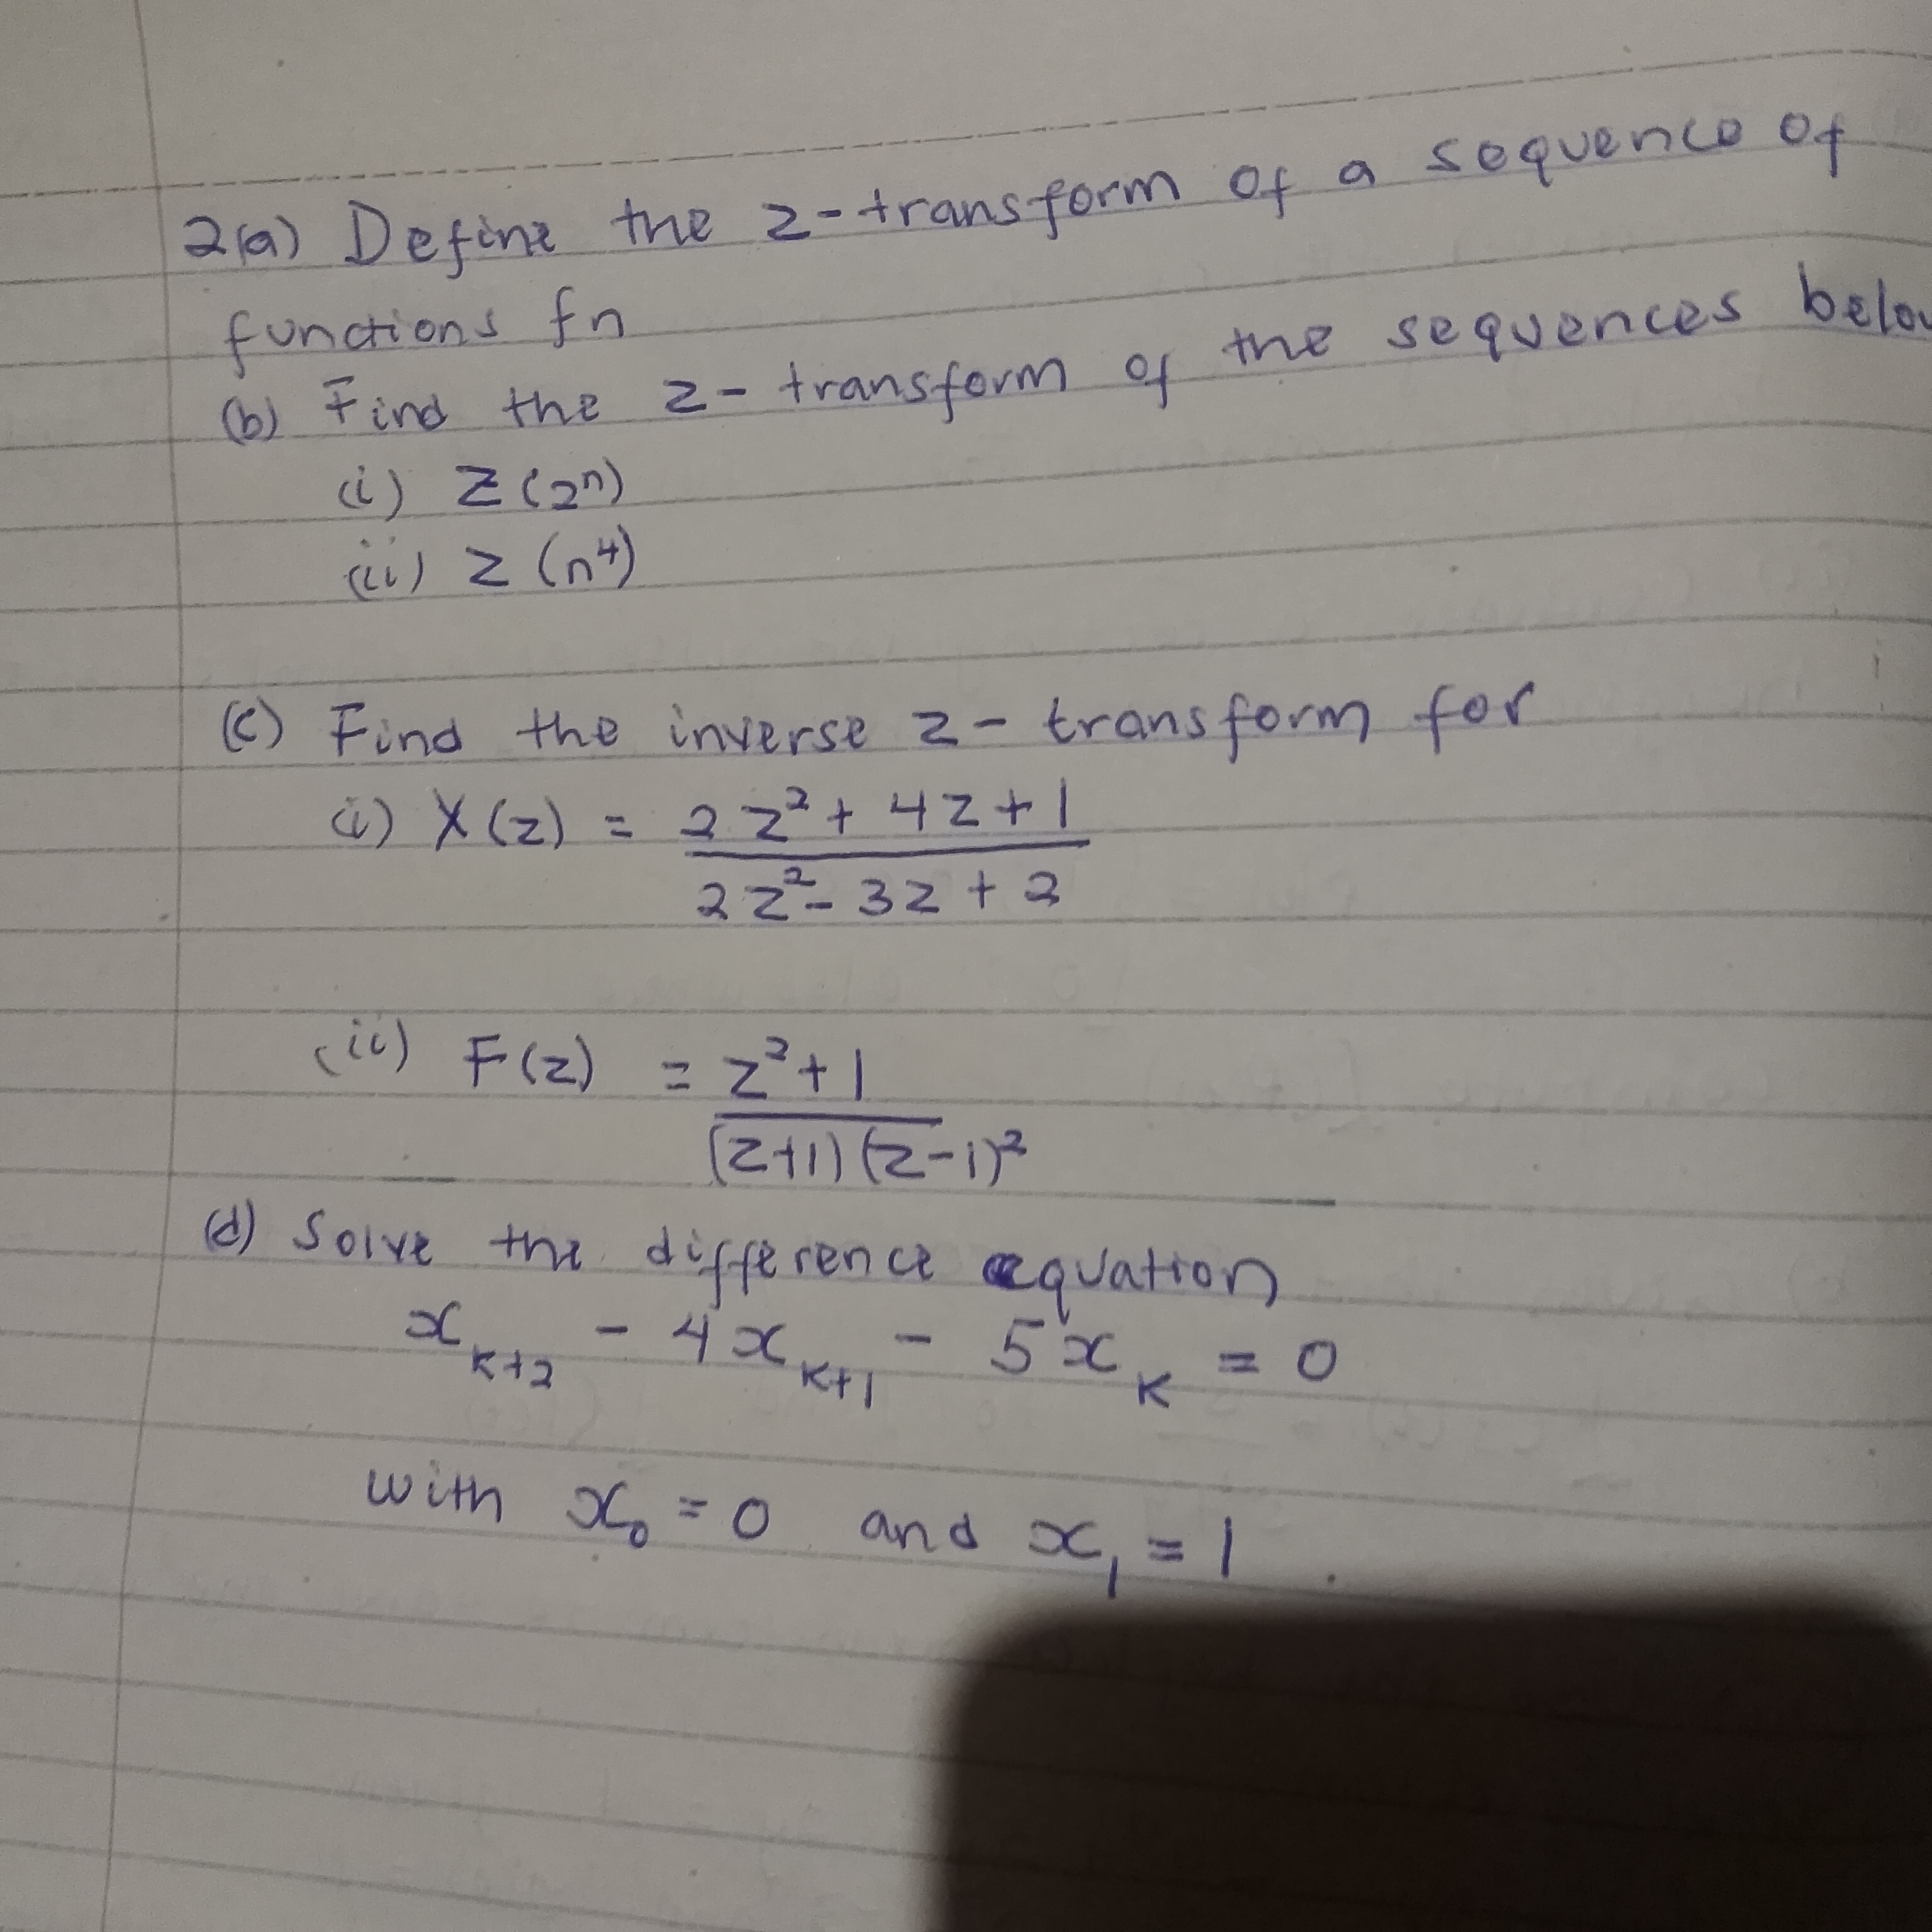 2(a) Define the z-transform of a sequence of
functions fn
(b) Find the z-transform of the sequences below
(i) Z(2ⁿ)
(ii) Z(n⁴)
(c) Find the inverse z-transform for
(i) X(z) = 2z² + 4z + 1
2z² - 3z + 2
(ii) F(z) = z² + 1
(z+1)(z-1)²
(d) Solve the difference equation
x_{k+2} - 4x_{k+1} - 5x_k = 0
with x₀ = 0 and x₁ = 1.